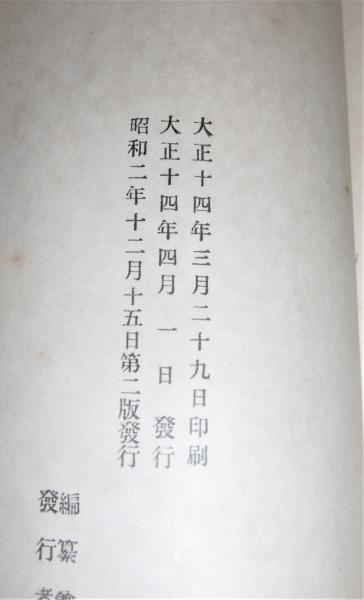 大正十四年三月二十九日印刷
大正十四年四月一日發行
昭和二年十二月十五日第二版發行
編纂
發行者